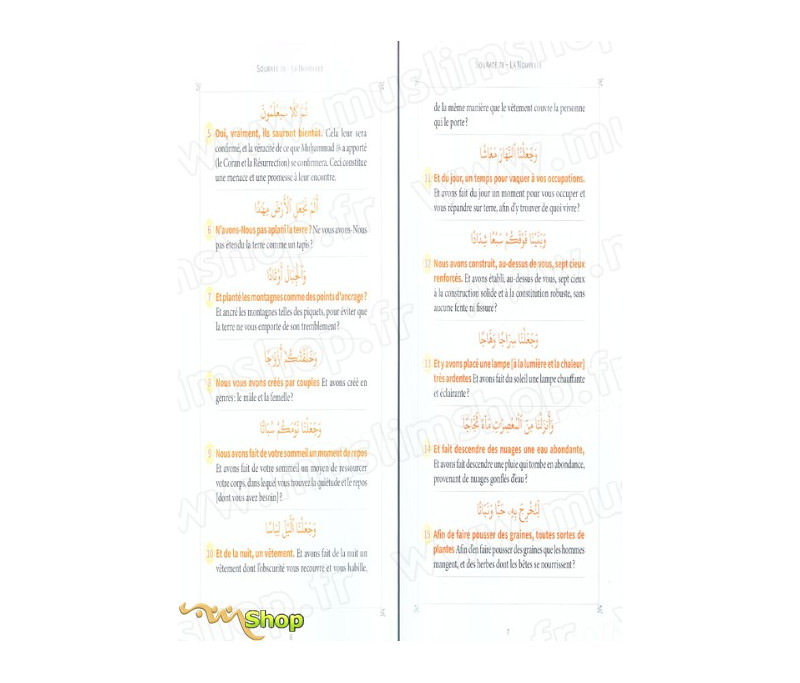 SOURATE 78 - LA NOUVELLE
ثُمَّ كَلَّا سَيَعْلَمُونَ
5 Oui, vraiment, ils sauront bientôt. Cela leur sera
confirmé, et la véracité de ce que Muḥammad ﷺ a apporté
(le Coran et la Résurrection) se confirmera. Ceci constitue
une menace et une promesse à leur encontre.
أَلَمْ نَجْعَلِ ٱلْأَرْضَ مِهَٰدًا
6 N'avons-Nous pas aplani la terre ? Ne vous avons-Nous
pas étendu la terre comme un tapis ?
وَٱلْجِبَالَ أَوْتَادًا
7 Et planté les montagnes comme des points d'ancrage ?
Et ancré les montagnes telles des piquets, pour éviter que
la terre ne vous emporte de son tremblement ?
وَخَلَقْنَٰكُمْ أَزْوَٰجًا
8 Nous vous avons créés par couples Et avons créé en
genres : le mâle et la femelle ?
وَجَعَلْنَا نَوْمَكُمْ سُبَاتًا
9 Nous avons fait de votre sommeil un moment de repos
Et avons fait de votre sommeil un moyen de ressourcer
votre corps, dans lequel vous trouvez la quiétude et le repos
[dont vous avez besoin] ?
وَجَعَلْنَا ٱلَّيْلَ لِبَاسًا
10 Et de la nuit, un vêtement. Et avons fait de la nuit un
vêtement dont l'obscurité vous recouvre et vous habille,
6
SOURATE 78 - LA NOUVELLE
de la même manière que le vêtement couvre la personne
qui le porte ?
وَجَعَلْنَا ٱلنَّهَارَ مَعَاشًا
11 Et du jour, un temps pour vaquer à vos occupations.
Et avons fait du jour un moment pour vous occuper et
vous répandre sur terre, afin d'y trouver de quoi vivre ?
وَبَنَيْنَا فَوْقَكُمْ سَبْعًا شِدَادًا
12 Nous avons construit, au-dessus de vous, sept cieux
renforcés. Et avons établi, au-dessus de vous, sept cieux
à la construction solide et à la constitution robuste, sans
aucune fente ni fissure ?
وَجَعَلْنَا سِرَاجًا وَهَّاجًا
13 Et y avons placé une lampe [à la lumière et la chaleur]
très ardentes Et avons fait du soleil une lampe chauffante
et éclairante ?
وَأَنزَلْنَا مِنَ ٱلْمُعْصِرَٰتِ مَآءً ثَجَّاجًا
14 Et fait descendre des nuages une eau abondante,
Et avons fait descendre une pluie qui tombe en abondance,
provenant de nuages gonflés d'eau ?
لِّنُخْرِجَ بِهِۦ حَبًّا وَنَبَاتًا
15 Afin de faire pousser des graines, toutes sortes de
plantes Afin d'en faire pousser des graines que les hommes
mangent, et des herbes dont les bêtes se nourrissent ?
7
www.muslimshop.fr
Shop